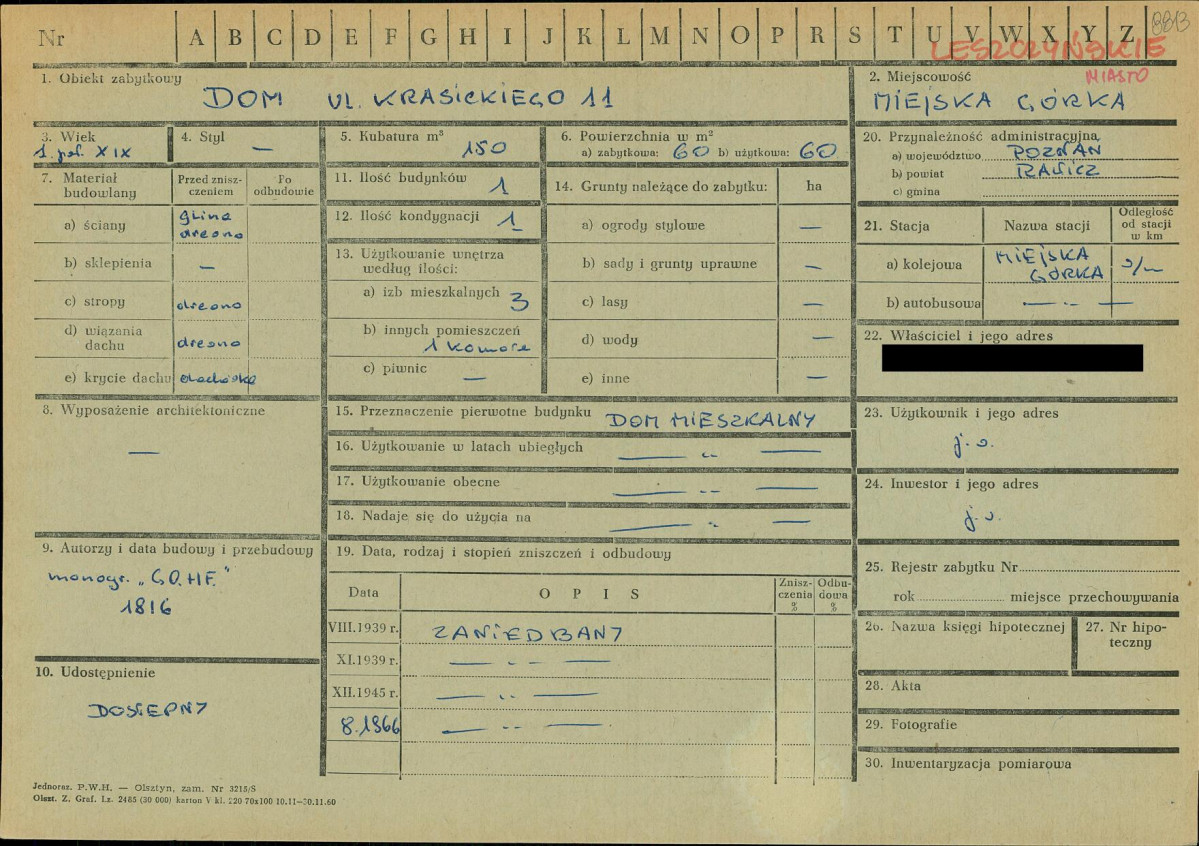 Nr A B C D E F G H I J K L M N O P R S T U V W X Y Z 8813
LESZCZYŃSKIE
MIASTO
1. Obiekt zabytkowy
DOM ul. KRASICKIEGO 11
2. Miejscowość
MIEJSKA GÓRKA
3. Wiek
1. poł. XIX
4. Styl
—
5. Kubatura m³
150
6. Powierzchnia w m²
a) zabytkowa: 60 b) użytkowa: 60
20. Przynależność administracyjna
a) województwo POZNAŃ
b) powiat RAWICZ
c) gmina
7. Materiał budowlany
Przed zniszczeniem
Po odbudowie
a) ściany glina drewno
b) sklepienia —
c) stropy drewno
d) wiązania dachu drewno
e) krycie dachu dachówka
11. Ilość budynków 1
12. Ilość kondygnacji 1
13. Użytkowanie wnętrza według ilości:
a) izb mieszkalnych 3
b) innych pomieszczeń
1 komora
c) piwnic —
14. Grunty należące do zabytku: ha
a) ogrody stylowe —
b) sady i grunty uprawne —
c) lasy —
d) wody —
e) inne —
21. Stacja
Nazwa stacji
Odległość od stacji w km
a) kolejowa MIEJSKA GÓRKA
b) autobusowa — · — · —
22. Właściciel i jego adres
8. Wyposażenie architektoniczne
—
15. Przeznaczenie pierwotne budynku DOM MIESZKALNY
16. Użytkowanie w latach ubiegłych — „ —
17. Użytkowanie obecne — „ —
18. Nadaje się do użycia na — „ —
23. Użytkownik i jego adres
j. w.
24. Inwestor i jego adres
j. w.
9. Autorzy i data budowy i przebudowy
monogr. „G.O.H.F."
1816
19. Data, rodzaj i stopień zniszczeń i odbudowy
Data
O P I S
Zniszczenia %
Odbudowa %
VIII.1939 r. ZANIEDBANY
XI.1939 r. — „ —
XII.1945 r. — „ —
8.1966 — „ —
25. Rejestr zabytku Nr
rok miejsce przechowywania
26. Nazwa księgi hipotecznej
27. Nr hipoteczny
10. Udostępnienie
DOSTĘPNY
28. Akta
29. Fotografie
30. Inwentaryzacja pomiarowa
Jednoraz. P.W.H. — Olsztyn, zam. Nr 3215/S
Olszt. Z. Graf. Lz. 2485 (30 000) karton V kl. 220 70x100 10.11—30.11.60